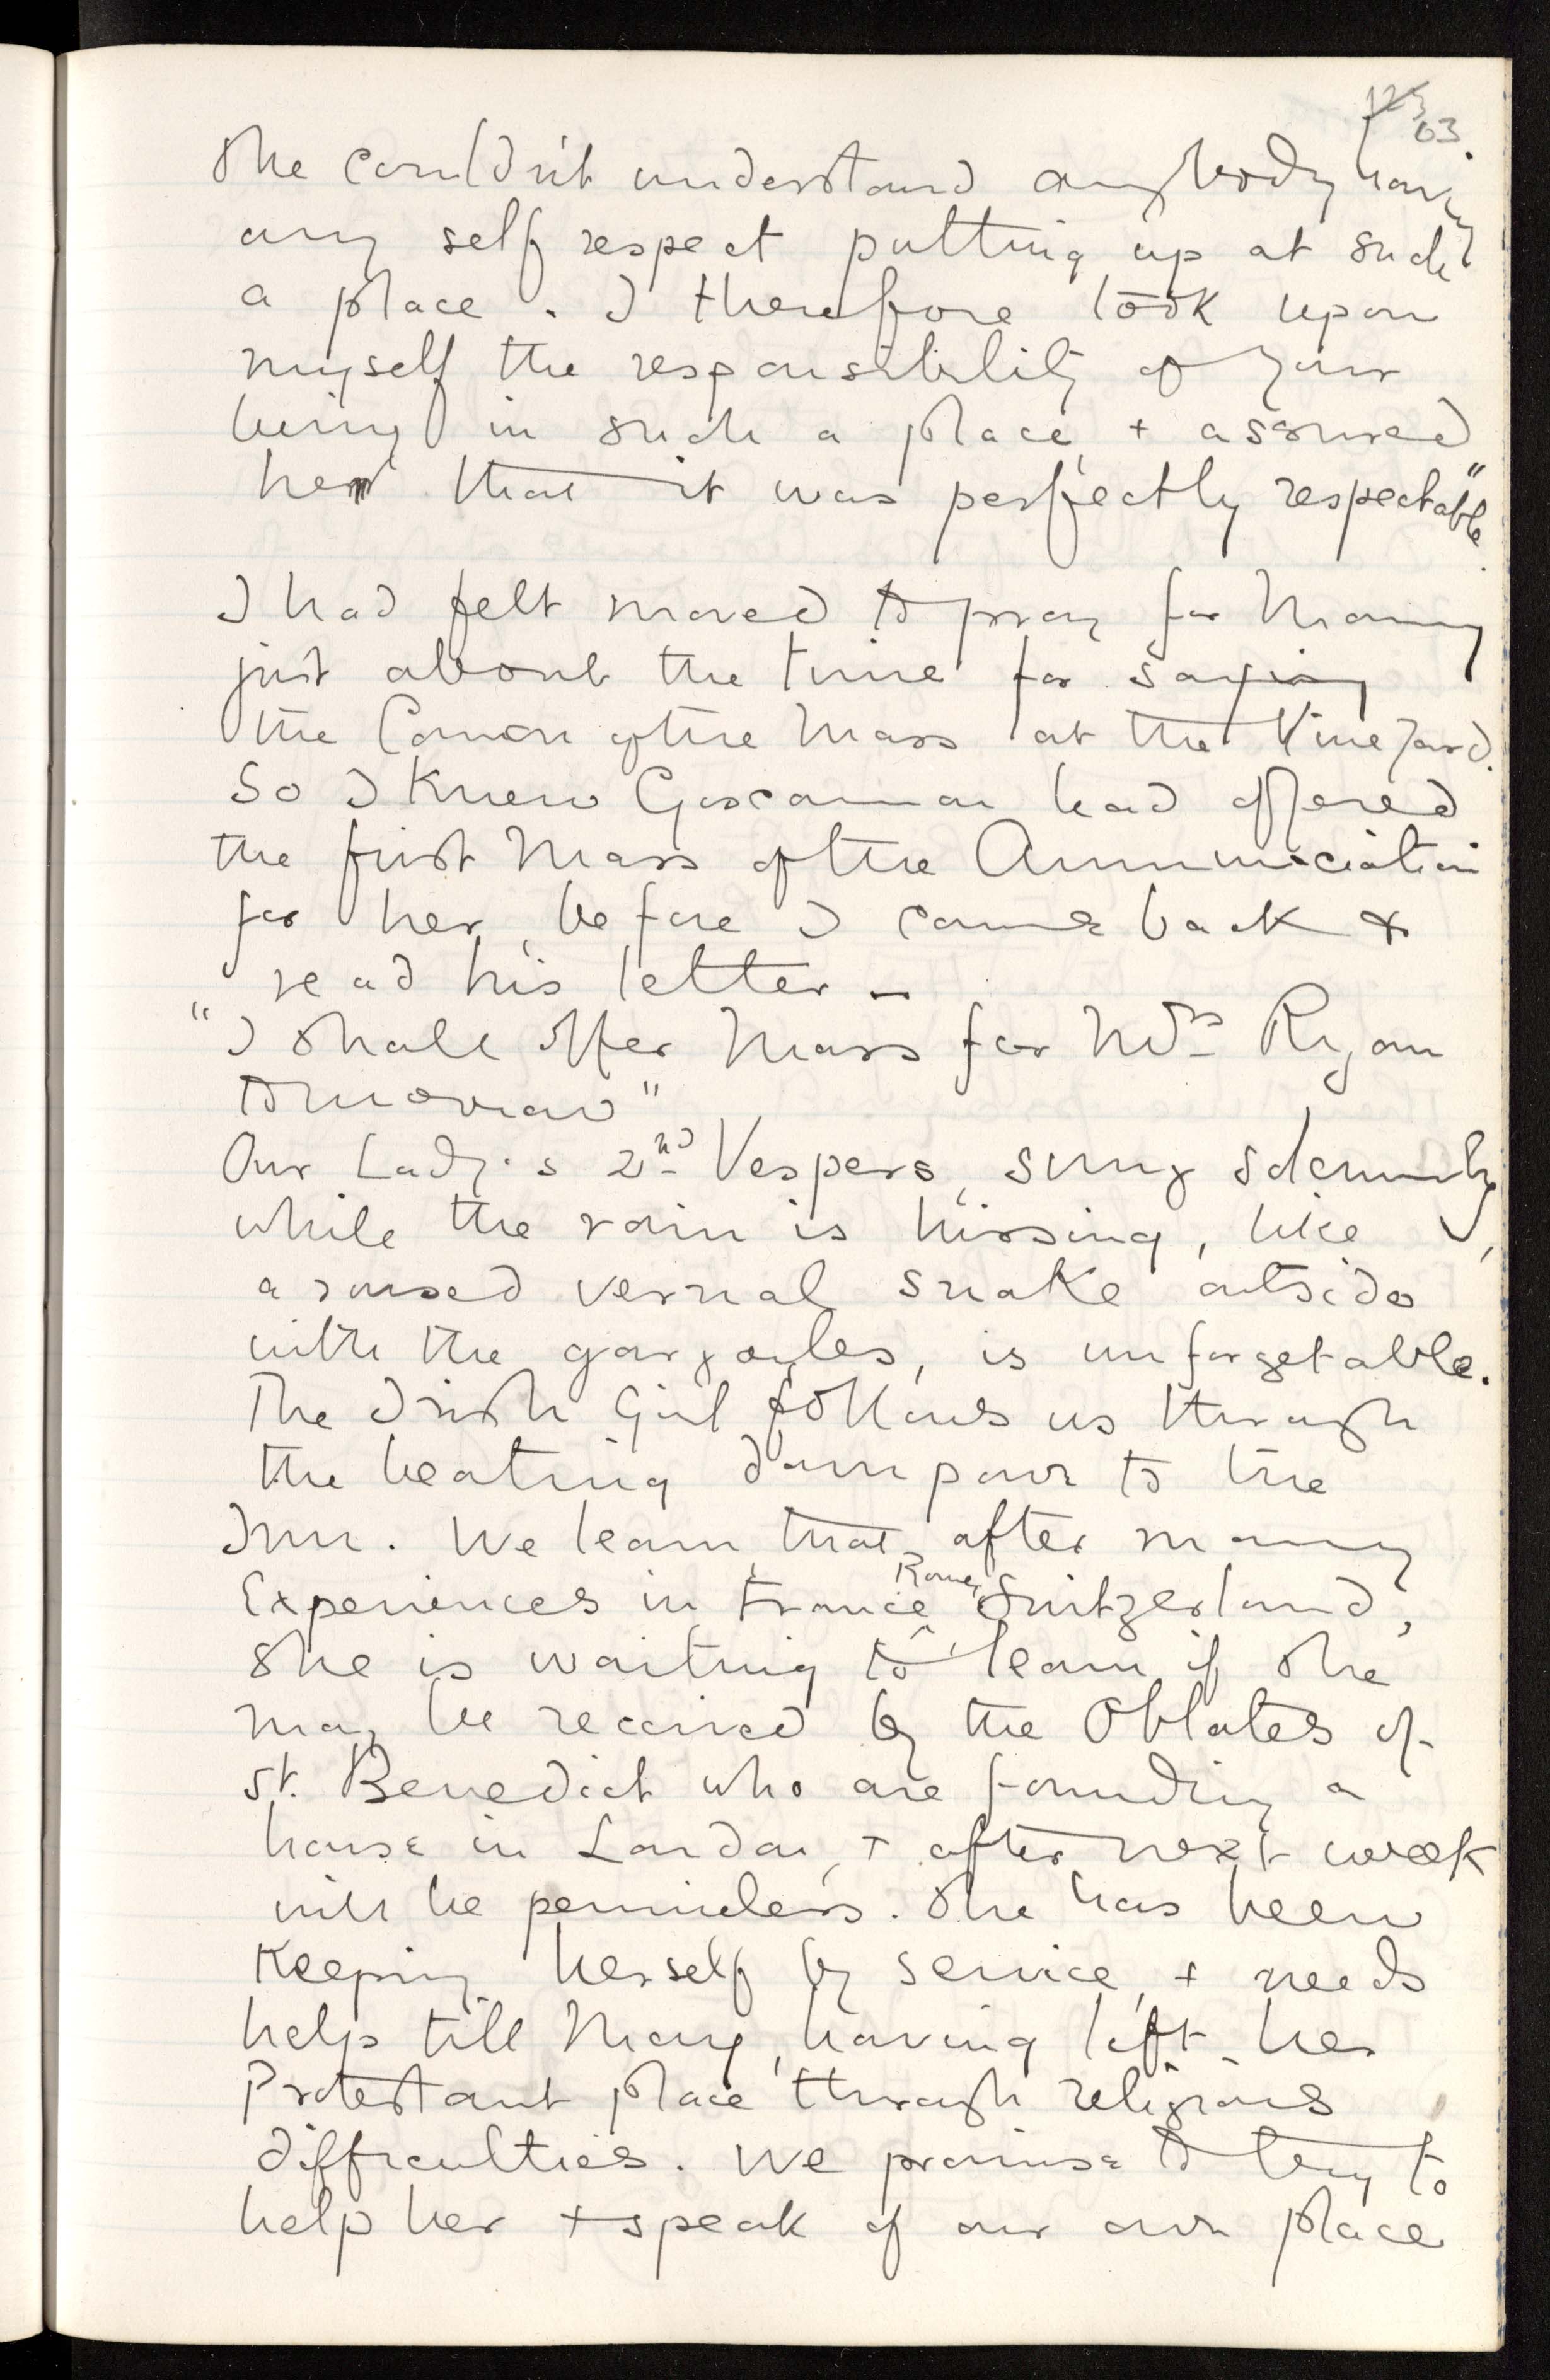 123
63
She couldn't understand anybody having
any self respect putting up at such
a place. I therefore took upon
myself the responsibility of your
being in such a place, + assured
her that it was perfectly respectable."
I had felt moved to pray for Mary
just about the time for saying
the Canon of the Mass at the Vineyard.
So I knew Goscannon had offered
the first Mass of the Annunciation
for her, before I came back &
read his letter –
"I shall offer Mass for Mrs Ryan
tomorrow"
Our Lady's 2nd Vespers, sung solemnly,
while the rain is hissing, like
a roused vernal snake outside
with the gargoyles, is unforgetable.
The Irish Girl follows us through
the beating downpour to the
Inn. We learn that, after many
Experiences in France Rome, Switzerland,
she is waiting to learn if she
may be received by the Oblates of
St. Benedict who are founding a
house in London, + after next week
will be penniless. She has been
keeping herself by service, + needs
help till May, having left her
Protestant place through religious
difficulties. We promise to try to
help her + speak of our own place